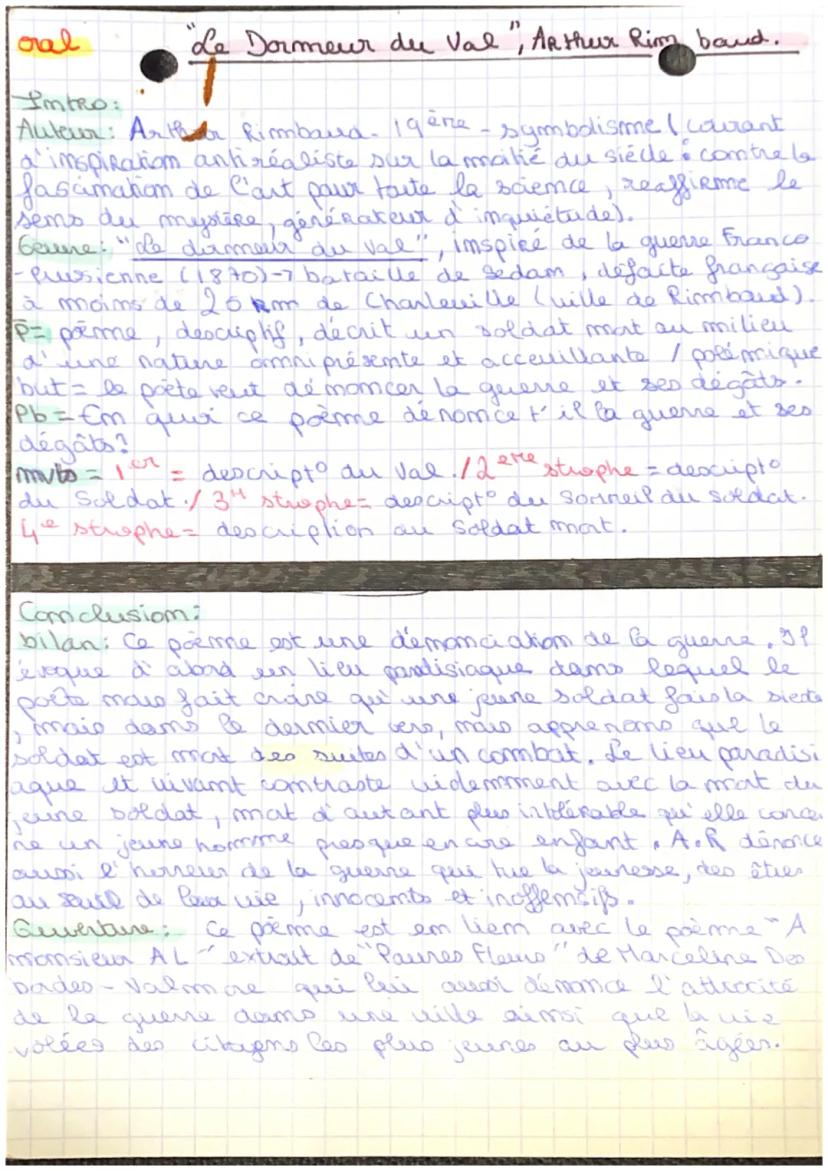 oral "Le Dormeur du Val", Arthur Rimbaud.
Intro:
Auteur: Arthur Rimbaud - 19ère - symbolisme (courant
d'inspiration antiréaliste sur la moitié du siècle : contre la
fascination de l'art pour toute la science, reaffirme le
sens du mystère, générateur d'inquiétude).
Genre: "Le dormeur du Val", inspiré de la guerre Franco
-Prusienne (1870) -> bataille de Sedam, défaite française
à moins de 20 km de Charleville (ville de Rimbaud).
P= poème, descriptif, décrit un soldat mort au milieu
d'une nature omniprésente et acceuillante / polémique
but = le poète veut dénoncer la guerre et ses dégâts.
Pb = En quoi ce poème dénonce t'il la guerre et ses
dégâts?
mvts = 1er = descript° du Val. / 2ère strophe = descript°
du Soldat. / 3H strophe = descript° du sommeil du soldat.
4e strophe = description du Soldat mort.
Conclusion:
bilan: Ce poème est une dénonciation de la guerre. Il
évoque d'abord un lieu paradisiaque dans lequel le
poète nous fait croire qu'une jeune soldat fais la sieste
, mais dans le dernier vers, nous apprenons que le
soldat est mort des suites d'un combat. Le lieu paradisi
aque et vivant contraste videmment avec la mort du
jeune soldat, mort d'autant plus intolérable qu'elle concer
ne un jeune homme presque encore enfant. A.R dénonce
aussi l'horreur de la guerre qui tue la jeunesse, des êtres
au seuil de leur vie, innocents et inoffensifs.
Ouverture: Ce poème est en lien avec le poème "A
monsieur AL" extrait de "Pauvres Fleurs" de Marceline Des
bordes-Valmore qui lui aussi dénonce l'attrocité
de la guerre dans une ville ainsi que la vie
volées des citoyens les plus jeunes au plus âgées.